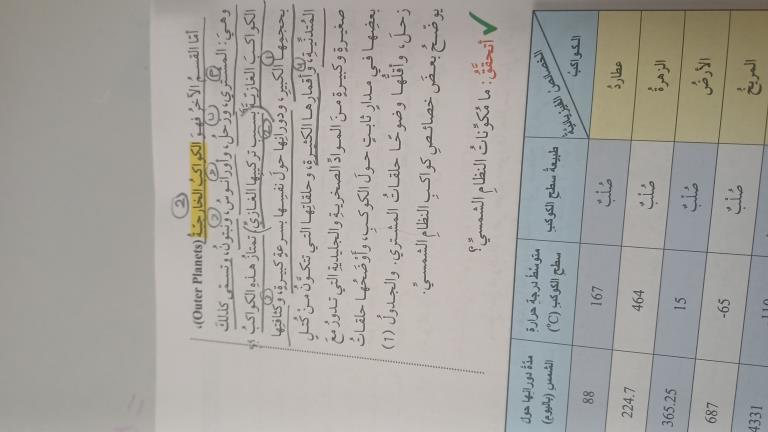 أمّا القسمُ الآخرُ فهوَ الكواكبُ الخارجيّةُ (Outer Planets)،
وهيَ: المشتري، وزحلُ، وأورانوسُ، ونبتونُ، وتسمّى كذلكَ
الكواكبَ الغازيّةَ؛ بسببِ تركيبِها الغازيِّ، تمتازُ هذهِ الكواكبُ
بحجومِها الكبيرةِ، ودورانِها حولَ نفسِها بسرعةٍ كبيرةٍ، وكثافتِها
المُتدنّيةِ، وأقمارِها الكثيرةِ، وحلقاتِها التي تتكوَّنُ منْ كُتلٍ
صغيرةٍ وكبيرةٍ منَ الموادِّ الصخريةِ والجليديةِ التي تدورُ معَ
بعضِها في مدارٍ ثابتٍ حولَ الكوكبِ، وأوضحُها حلقاتُ
زحلَ، وأقلُّها وضوحًا حلقاتُ المشتري. والجدولُ (1)
يوضّحُ بعضَ خصائصِ كواكبِ النظامِ الشمسيِّ.
أتحقَّقُ: ما مُكوِّناتُ النظامِ الشمسيِّ؟
الخصائص الفيزيائية الكواكبُ
عطاردُ
الزهرةُ
الأرضُ
المريخُ
طبيعةُ سطحِ الكوكبِ
صُلْبٌ
صُلْبٌ
صُلْبٌ
صُلْبٌ
متوسّطُ درجةِ حرارةِ
سطحِ الكوكبِ (°C)
167
464
15
-65
مدّةُ دورانِها حولَ
الشمسِ (باليوم)
88
224.7
365.25
687
4331